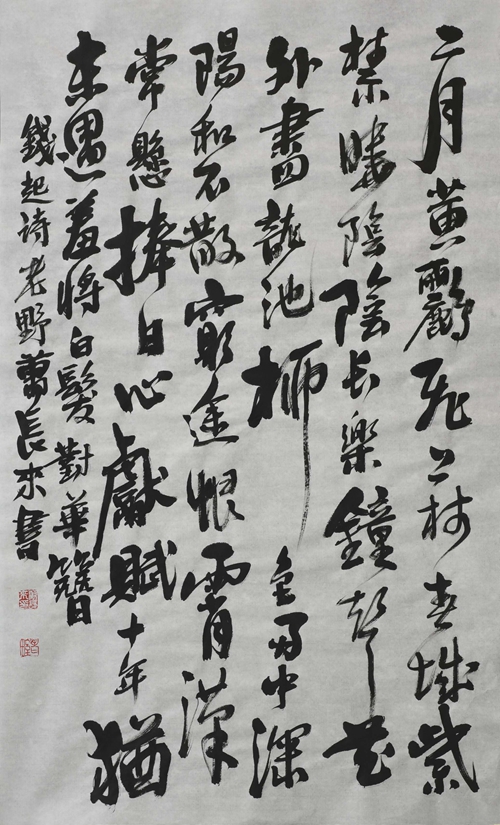 二月黄鸝飛上林春城紫
禁曉陰陰長樂鐘聲花
外盡龍池柳色雨中深
陽和不散窮途恨霄漢
常懸捧日心獻賦十年猶
未遇羞將白髮對華簪
錢起詩老野萬長来書